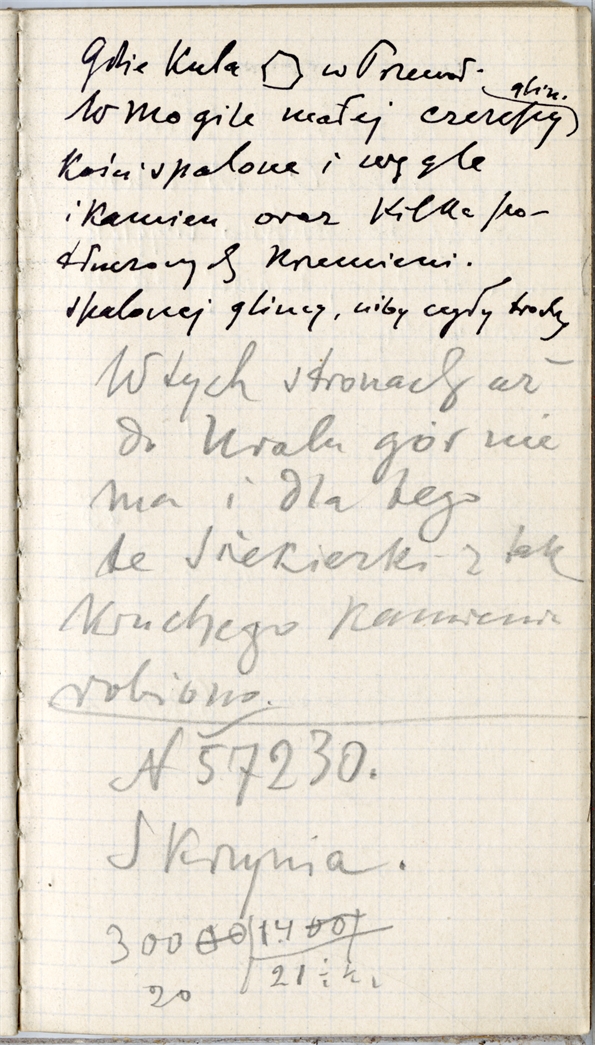 Gdzie Kula w Przewod.
W mogile małej czerepy glin.
Kości spalone i węgle
i Kamień oraz Kilka po-
tłuczonych Krzemieni.
spalonej gliny, niby cegły trochę
W tych stronach aż
do Urala gór nie
ma i dla tego
te siekierki z tak
Kruchego Kamienia
robiono.
N 57230.
Skrzynia.
30000 | 1400
20 21